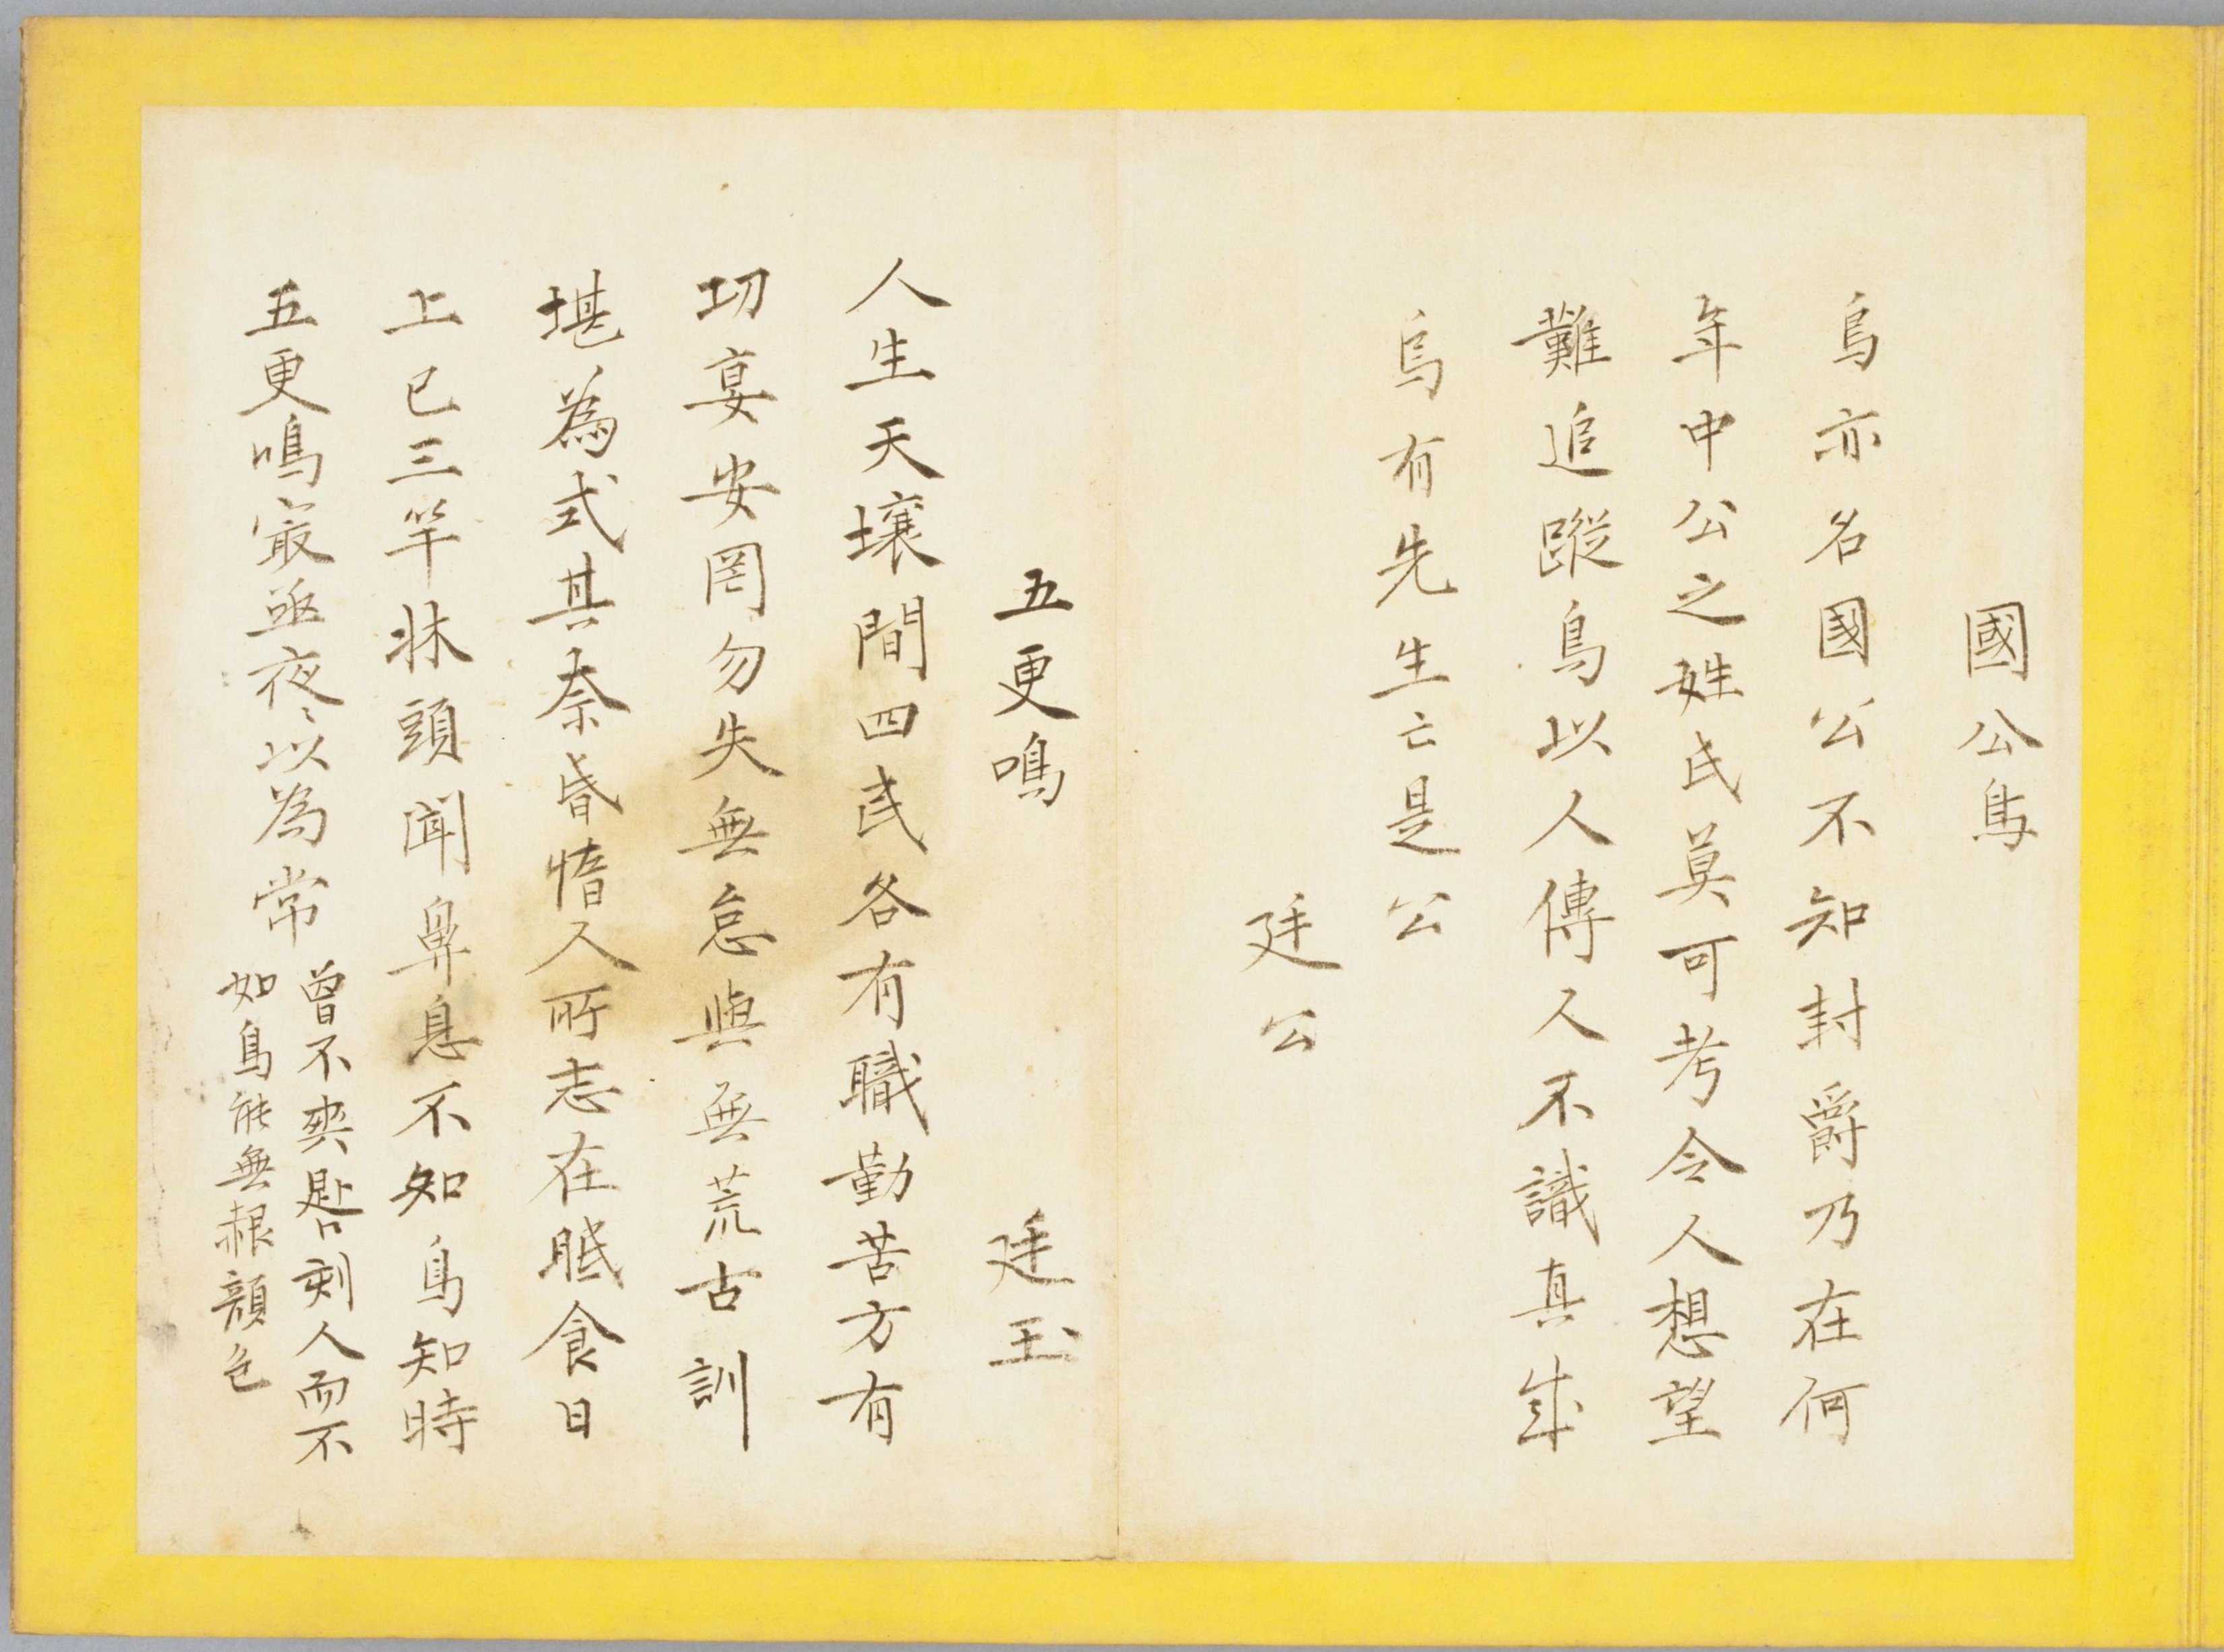 國公鳥
鳥亦名國公不知封爵乃在何
年中公之姓氏莫可考令人想望
難追蹤鳥以人傳人不識真成
烏有先生亡是公
廷公
五更鳴 廷玉
人生天壤間四民各有職勤苦方有
功宴安罔勿失無怠與無荒古訓
堪為式其奈昏惰人所志在眠食日
上已三竿牀頭聞鼻息不知鳥知時
五更鳴最亟夜〻以為常
曾不爽晷刻人而不
如鳥能無赧顏色